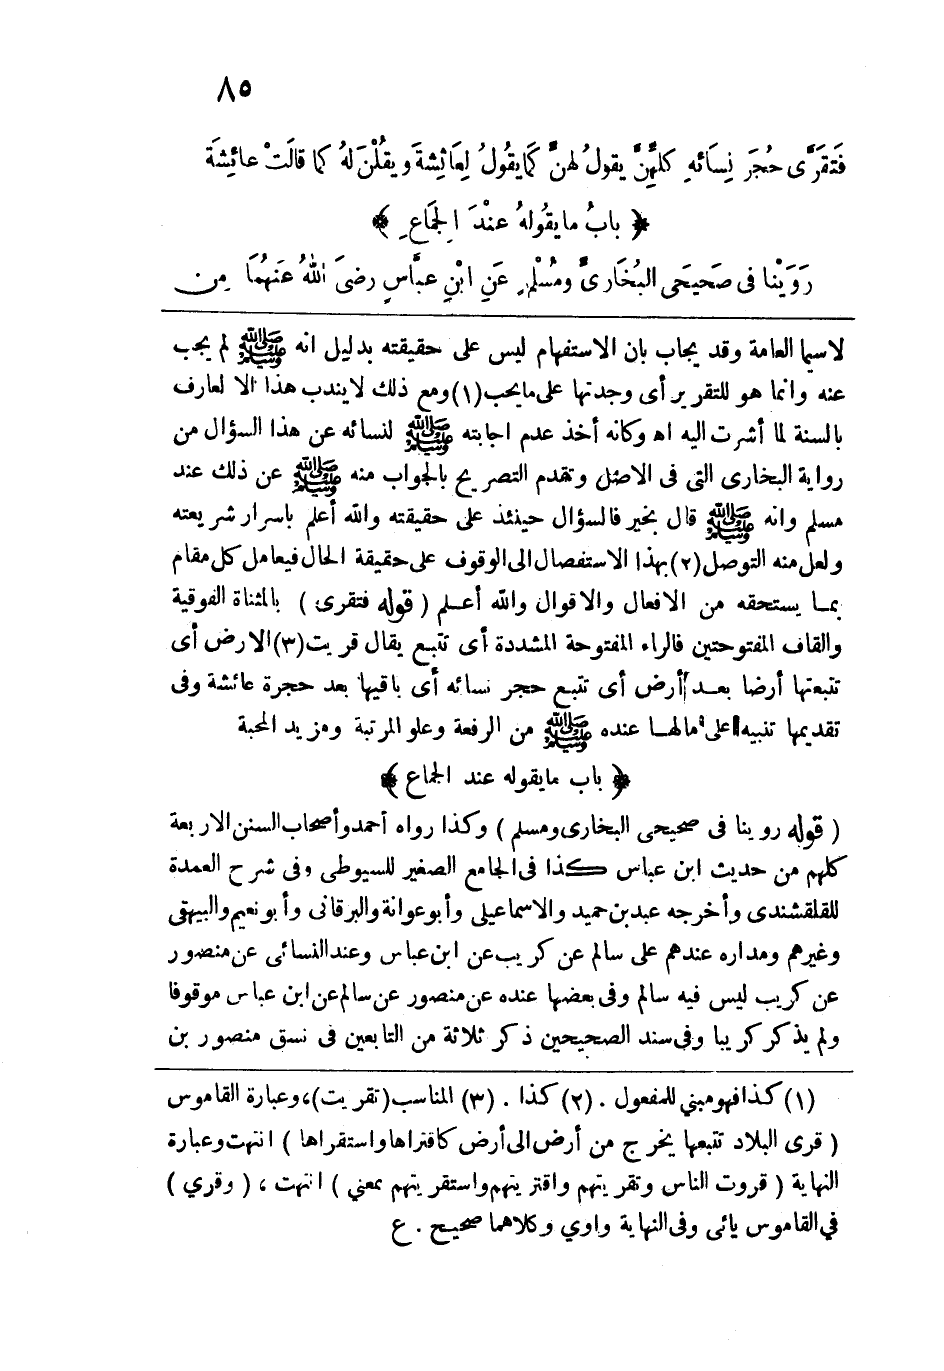 ٨٥
فَتَقَرَّى حُجَرَ نِسَائهِ كلهِنَّ يقولُ لهنَّ كَمَا يَقُولُ لِعَائِشةَ ويقُلْنَ لهُ كما قالَتْ عائِشَة
﴿ بابُ ما يقُولهُ عنْدَ الِجمَاعِ ﴾
رَوَيْنا فى صَحيحَى البُخَارىِّ ومُسْلمٍ عَنِ ابْنِ عبَّاسٍ رضىَ اللهُ عَنهُمَا مِن
لاسيما العامة وقد يجاب بان الاستفهام ليس على حقيقته بدليل انه ﷺ لم يجب
عنه وانما هو للتقرير أى وجدتها على مايحب (١) ومع ذلك لايندب هذا الا لعارف
بالسنة لما أشرت اليه اه وكانه أخذ عدم اجابته ﷺ لنسائه عن هذا السؤال من
رواية البخارى التى فى الاصل وتقدم التصريح بالجواب منه ﷺ عن ذلك عند
مسلم وانه ﷺ قال بخير فالسؤال حينئذ على حقيقته والله أعلم باسرار شريعته
ولعل منه التوصل (٢) بهذا الاستفصال الى الوقوف على حقيقة الحال فيعامل كل مقام
بما يستحقه من الافعال والاقوال والله أعلم ( قوله فتقرى ) بالمثناة الفوقية
والقاف المفتوحتين فالراء المفتوحة المشددة أى تتبع يقال قريت (٣) الارض أى
تتبعتها أرضا بعد أرض أى تتبع حجر نسائه أى باقيها بعد حجرة عائشة وفى
تقديمها تنبيه على مالها عنده ﷺ من الرفعة وعلو المرتبة ومزيد المحبة
﴿ باب مايقوله عند الجماع ﴾
( قوله روينا فى صحيحى البخارى ومسلم ) وكذا رواه أحمد وأصحاب السنن الاربعة
كلهم من حديث ابن عباس كذا فى الجامع الصغير للسيوطى وفى شرح العمدة
للقلقشندى وأخرجه عبد بن حميد والاسماعيلى وأبو عوانة والبرقانى وأبو نعيم والبيهقى
وغيرهم ومداره عندهم على سالم عن كريب عن ابن عباس وعند النسائى عن منصور
عن كريب ليس فيه سالم وفى بعضها عنده عن منصور عن سالم عن ابن عباس موقوفا
ولم يذكر كريبا وفى سند الصحيحين ذكر ثلاثة من التابعين فى نسق منصور بن
(١) كذا فهو مبني للمفعول . (٢) كذا . (٣) المناسب (تقريت)، وعبارة القاموس
( قرى البلاد تتبعها يخرج من أرض الى أرض كاقتراها واستقراها ) انتهت وعبارة
النهاية ( قروت الناس وتقريتهم واقتريتهم واستقريتهم بمعني ) انتهت ، ( وقري )
في القاموس يائى وفى النهاية واوي وكلاهما صحيح . ع